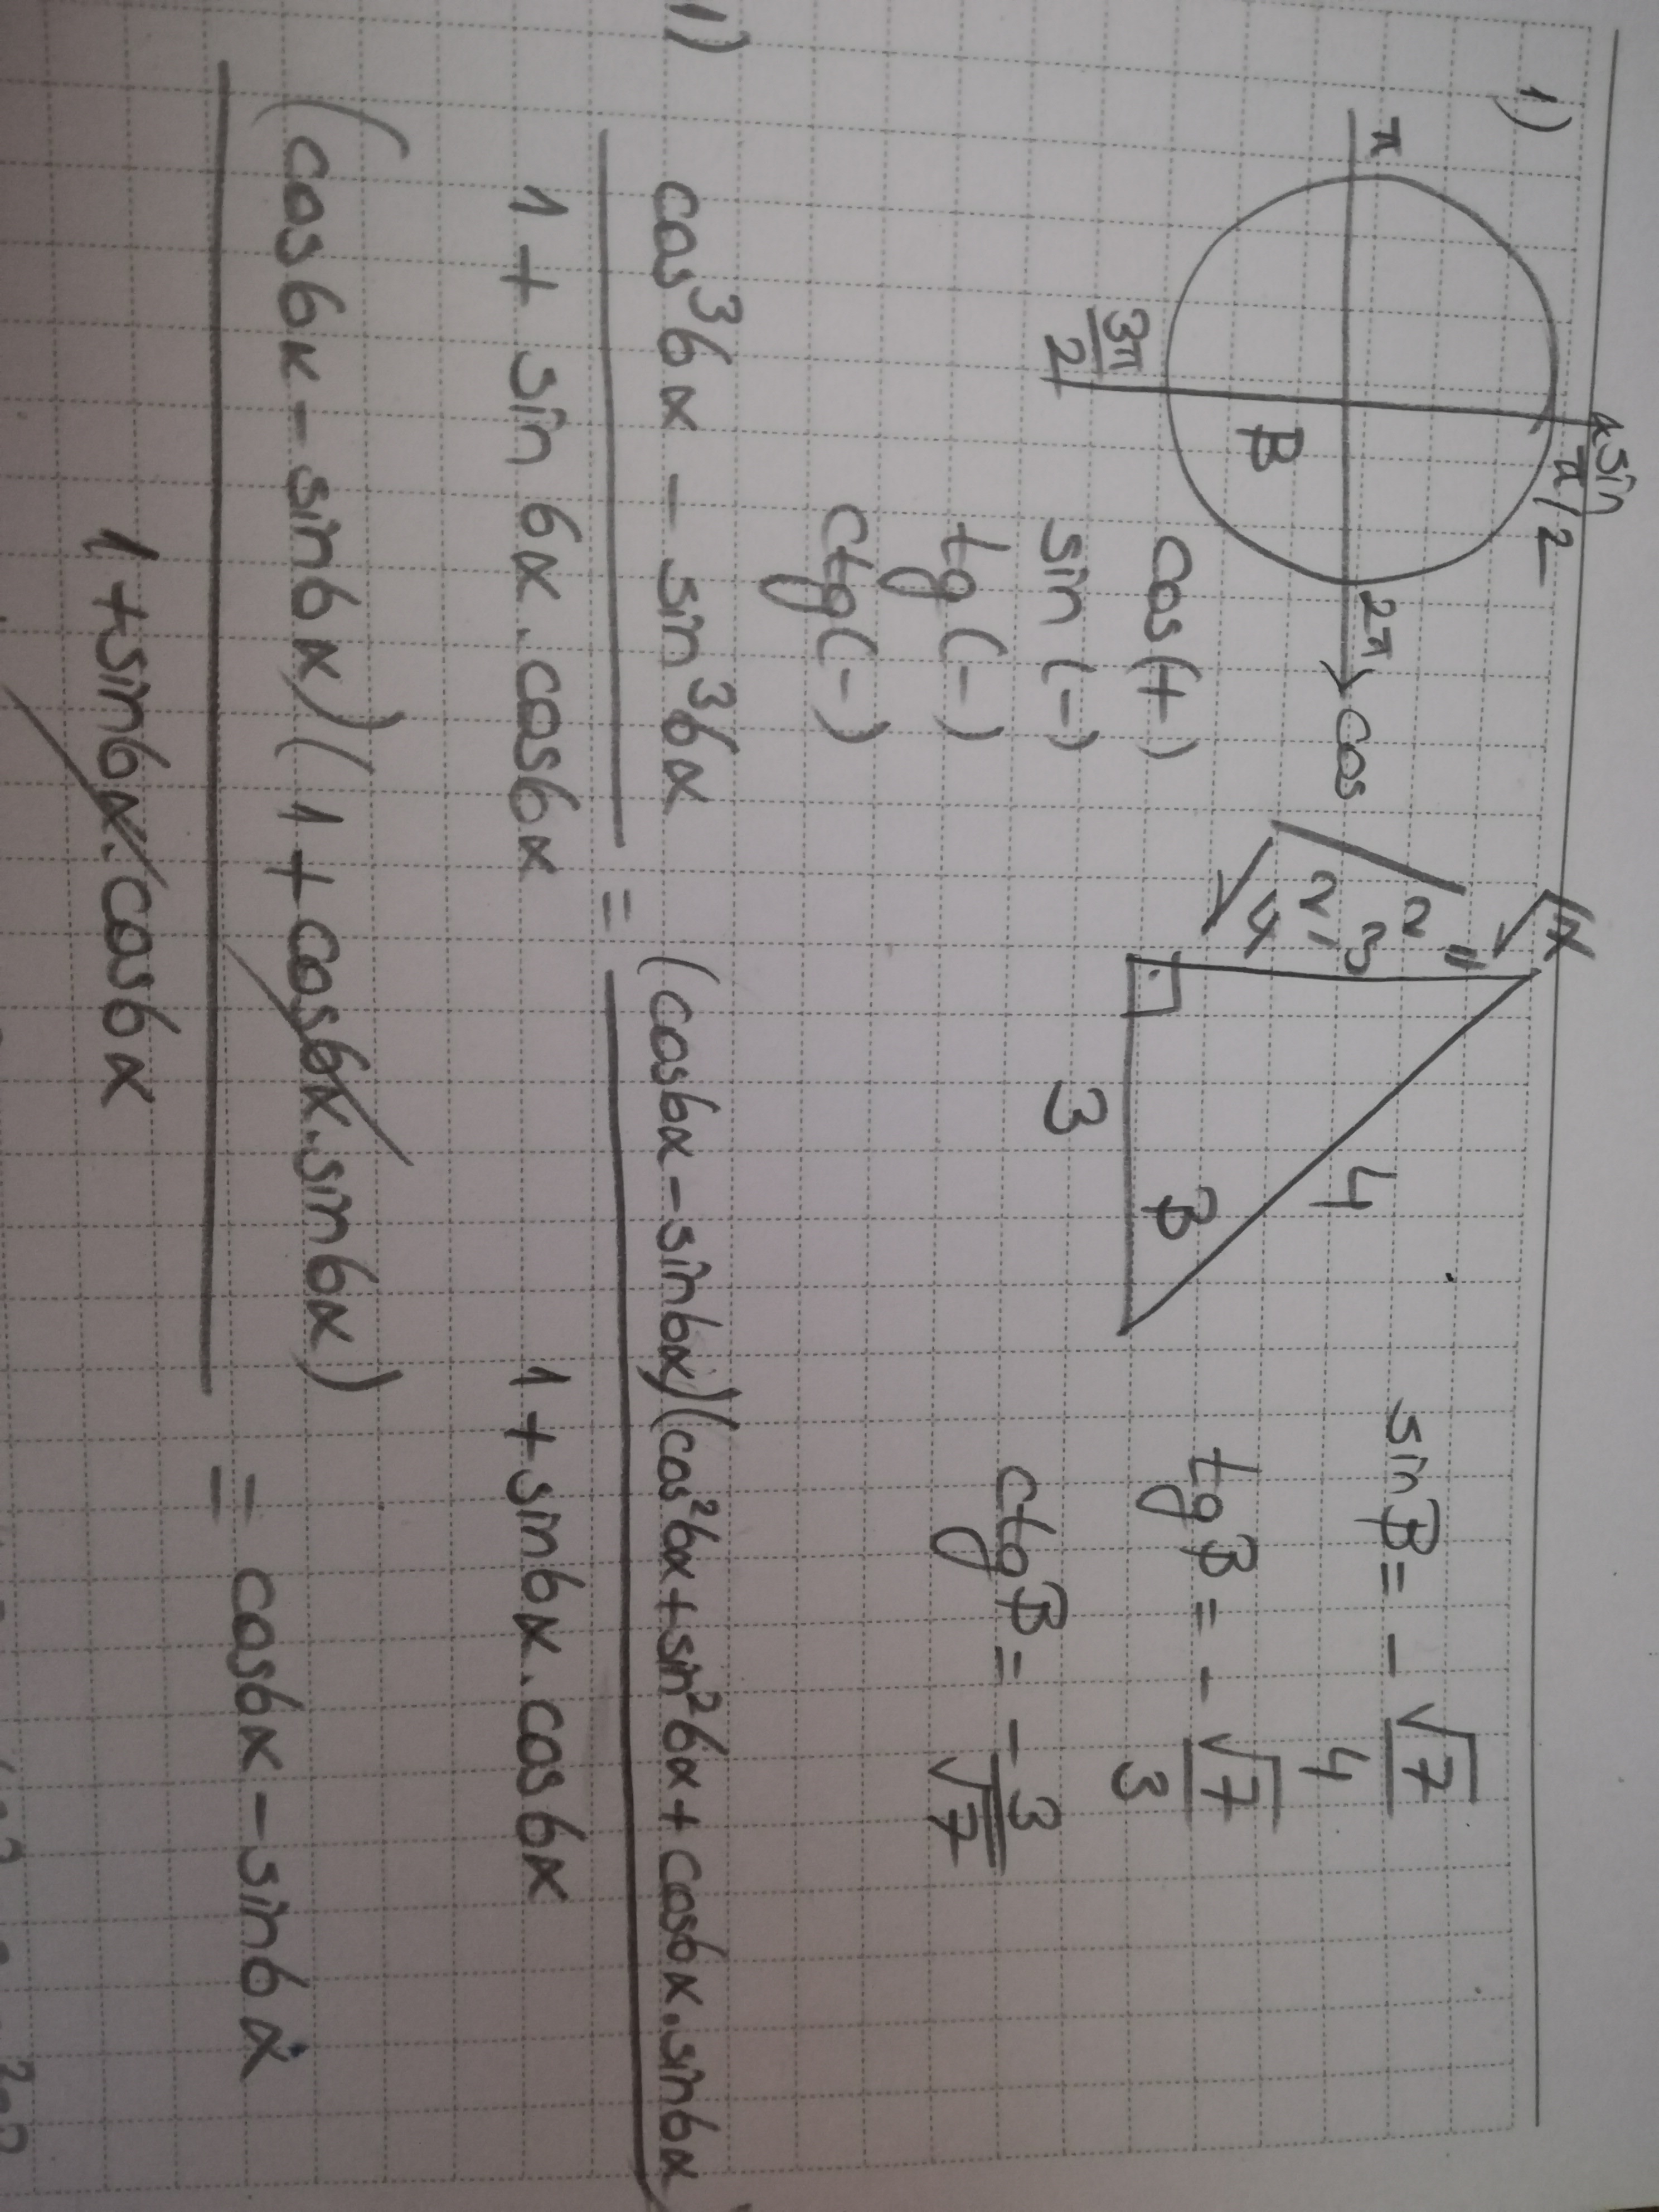 1)
sin
π/2
π
2π
cos
β
3π/2
cos (+)
sin (-)
tg (-)
ctg (-)
√4²-3² = √7
4
3
β
sin β = - √7/4
tg β = - √7/3
ctg β = - 3/√7
1)
cos³6α - sin³6α / 1 + sin 6α . cos6α = (cos6α - sin6α)(cos²6α + sin²6α + cos6α . sin6α / 1 + sin6α . cos6α
(cos6α - sin6α)(1 + cos6α . sin6α) / 1 + sin6α . cos6α = cos6α - sin6α